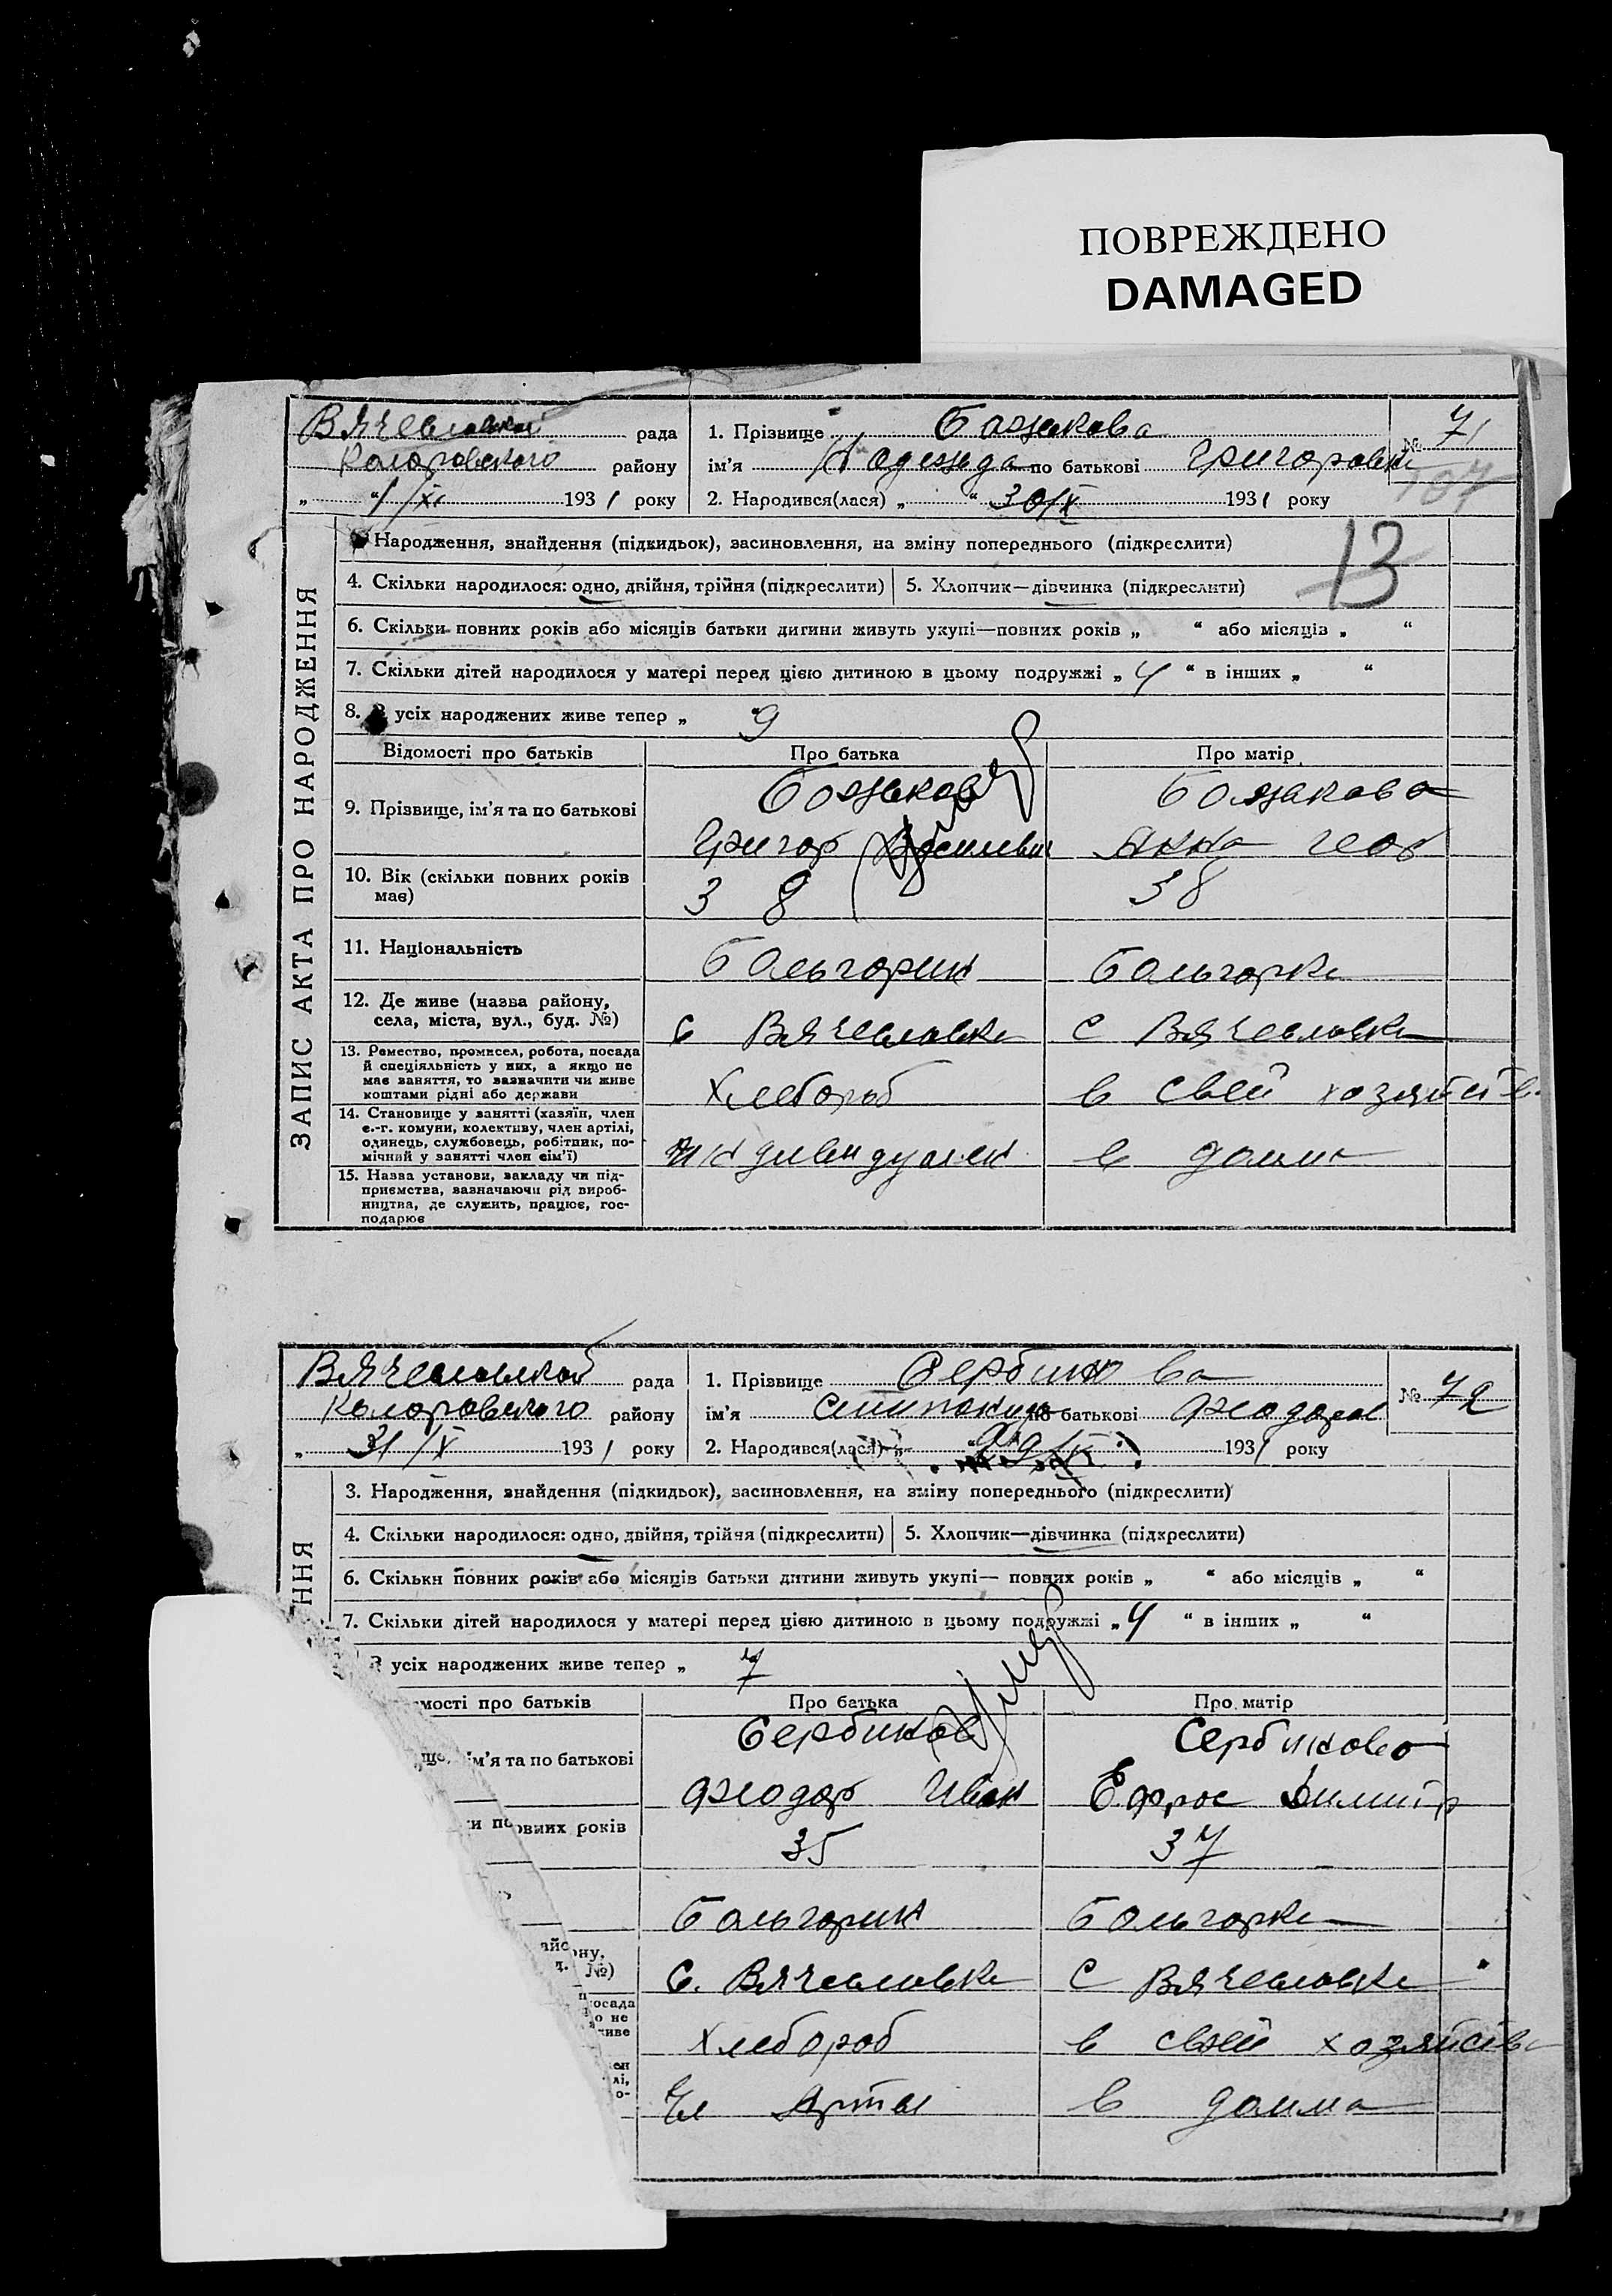 ПОВРЕЖДЕНО
DAMAGED
рада
Коларовского району
„ 1/XI 1931 року
1. Прізвище Божкова
ім'я Надежда по батькові
2. Народився(лася) „ “ 30/X 1931 року
№ 71
107
13
ЗАПИС АКТА ПРО НАРОДЖЕННЯ
Народження, знайдення (підкидьок), засиновлення, на зміну попереднього (підкреслити)
4. Скільки народилося: одно, двійня, трійня (підкреслити) 5. Хлопчик—дівчинка (підкреслити)
6. Скільки повних років або місяців батьки дитини живуть укупі—повних років „ “ або місяців „ “
7. Скільки дітей народилося у матері перед цією дитиною в цьому подружжі „ 4 “ в інших „ “
8. З усіх народжених живе тепер „ “
Відомості про батьків Про батька Про матір
9. Прізвище, ім'я та по батькові
Божков Божкова
Григор Василевич Анна Геор
10. Вік (скільки повних років має)
38 38
11. Національність
Больгорин Больгорка
12. Де живе (назва району, села, міста, вул., буд. №)
с Вячеловка с Вячеловка
13. Ремество, промисел, робота, посада й спеціяльність у них, а якщо не має заняття, то зазначити чи живе коштами рідні або держави
Хлебороб в свей хозяйств
14. Становище у занятті (хазяїн, член с.-г. комуни, колективу, член артілі, одинець, службовець, робітник, помічний у занятті член сім'ї)
в дома
15. Назва установи, закладу чи підприємства, зазначаючи рід виробництва, де служить, працює, господарює
рада
Коларовского району
„ 31/X 1931 року
1. Прізвище Сербинова
ім'я по батькові
2. Народився(лася) „ 1931 року
№ 72
ННЯ
3. Народження, знайдення (підкидьок), засиновлення, на зміну попереднього (підкреслити)
4. Скільки народилося: одно, двійня, трійня (підкреслити) 5. Хлопчик—дівчинка (підкреслити)
6. Скільки повних років або місяців батьки дитини живуть укупі— повних років „ “ або місяців „ “
7. Скільки дітей народилося у матері перед цією дитиною в цьому подружжі „ 4 “ в інших „ “
З усіх народжених живе тепер „ 7
мості про батьків Про батька Про матір
ім'я та по батькові
Сербинов Сербинова
Феодор Иван Ефрос Димитр
повних років
35 37
Больгорин Больгорка
№)
С. Вячеловка С Вячеловка
осада
о не
живе
Хлебороб в свей хозяйств
Чл Арты в дома